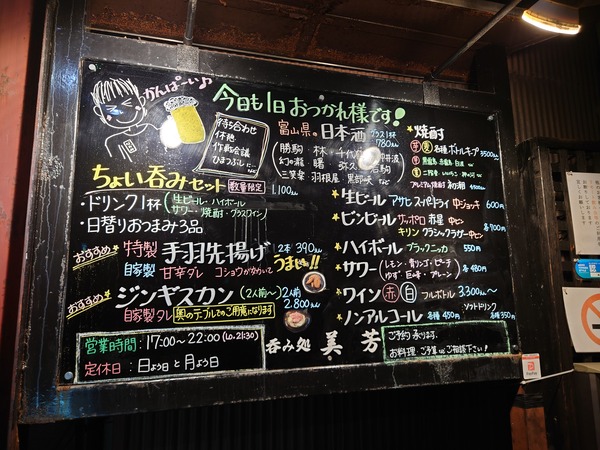 かんぱーい♪
今日も1日おつかれ様です!
待ち合わせ
休憩
作戦会議
ひまつぶしに…
富山県の日本酒 グラス1杯 780円
勝駒 林 千代
幻の瀧 曙
三笑楽 羽根屋
ちょい呑みセット 数量限定 1,100円
・ドリンク1杯(生ビール・ハイボール
サワー・焼酎・グラスワイン)
・日替りおつまみ3品
おすすめ 特製 手羽先揚げ 2本 390円
自家製 甘辛タレ コショウがきいて うまじゃい!!
おすすめ ジンギスカン (2人前〜) 2人前 2,800円
自家製タレ 奥のテーブルでのご用意になります
営業時間:17:00〜22:00 (Lo.21:30)
定休日:日よう日と月よう日
★焼酎
芋 麦 各種ボトルキープ 3500円
★生ビール アサヒスーパードライ 中ジョッキ 600円
★ビンビール サッポロ 赤星 中ビン
キリン クラシックラガー 中ビン 各700円
★ハイボール ブラックニッカ 550円
★サワー (レモン・青リンゴ・ピーチ
ゆず・巨峰・プレーン) 各480円
★ワイン 赤 白 フルボトル 3,300円〜
★ノンアルコール 各種450円 ソフトドリンク 各種350円
呑み処 美芳
ご予約承ります。
お料理・ご予算などご相談下さい!